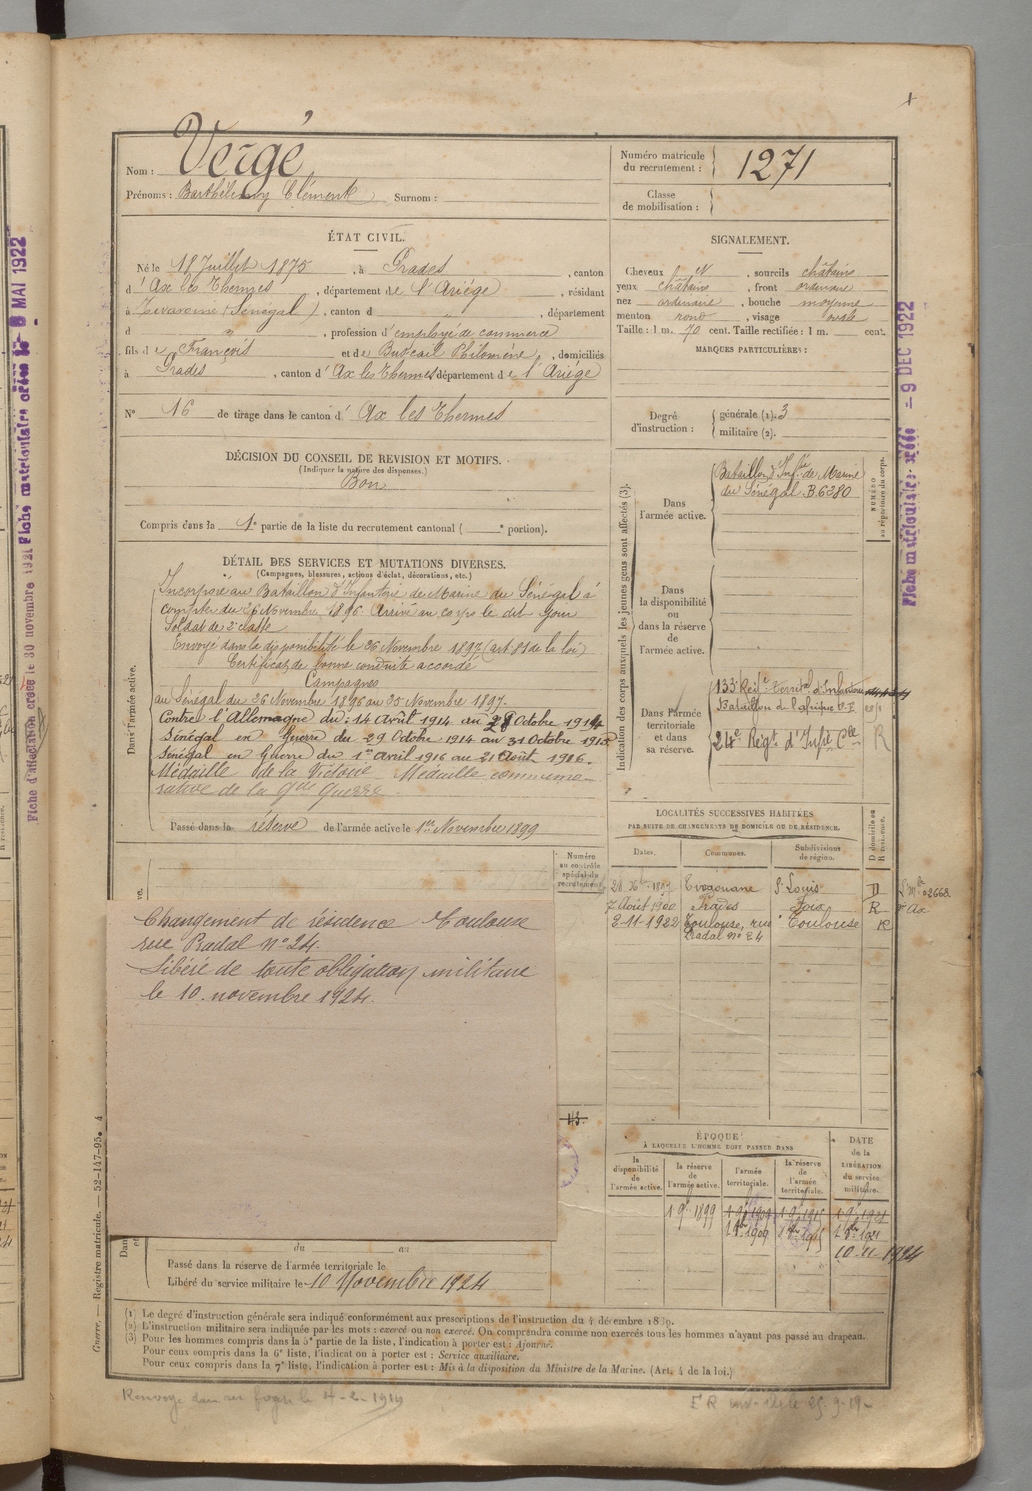 1
Nom : Vergé
Prénoms : Barthélemy Clément Surnom :
Numéro matricule du recrutement : 1271
Classe de mobilisation :
ÉTAT CIVIL.
Né le 18 Juillet 1875, à Prades, canton
d' Ax les Thermes, département de l'Ariége, résidant
à (Sénégal), canton d " , département
d " , profession d'employé de commerce
fils de François et de Philomène, domiciliés
à Prades, canton d' Ax les Thermes département de l'Ariége
N° 16 de tirage dans le canton d' Ax les Thermes
DÉCISION DU CONSEIL DE REVISION ET MOTIFS.
(Indiquer la nature des dispenses.)
Bon
Compris dans la 1e partie de la liste du recrutement cantonal ( e portion).
SIGNALEMENT.
Cheveux , sourcils châtains
yeux châtains, front ordinaire
nez ordinaire, bouche moyenne
menton rond, visage ovale
Taille : 1 m. 70 cent. Taille rectifiée : 1 m. cent.
MARQUES PARTICULIÈRES :
Degré d'instruction : générale (1). 3
militaire (2).
DÉTAIL DES SERVICES ET MUTATIONS DIVERSES.
(Campagnes, blessures, actions d'éclat, décorations, etc.)
Dans l'armée active.
Incorporé au Bataillon d'Infanterie de Marine du Sénégal à
compter du 26 Novembre 1896. Arrivé au corps le dit jour
Soldat de 2e classe
Envoyé dans la disponibilité le 26 Novembre 1897 (art. 81 de la loi)
Certificat de bonne conduite accordé
Campagnes
au Sénégal du 26 Novembre 1896 au 25 Novembre 1897.
Contre l'Allemagne du : 14 Avril 1914 au 28 Octobre 1914
Sénégal en Guerre du 29 Octobre 1914 au 31 Octobre 1915
Sénégal en Guerre du 1er avril 1916 au 21 Août 1916.
Médaille de la Victoire Médaille commémo-
rative de la Gde Guerre
Passé dans la réserve de l'armée active le 1er Novembre 1899
Numéro au contrôle spécial du recrutement
Indication des corps auxquels les jeunes gens sont affectés (3).
Dans l'armée active.
Bataillon d'Infie de Marine
du Sénégal. B.6380
NUMÉRO au répertoire du corps.
Dans la disponibilité ou dans la réserve de l'armée active.
Dans l'armée territoriale et dans sa réserve.
133 Régt Territal d'Infanterie
Bataillon de l'Afrique O.F.
24e Régt d'Infie Cle R
LOCALITÉS SUCCESSIVES HABITÉES
PAR SUITE DE CHANGEMENTS DE DOMICILE OU DE RÉSIDENCE.
Dates. Communes. Subdivisions de région. D domicile ou R résidence.
Tivaouane St Louis D
7 Août 1900 Prades Foix R Ax
3-11-1922 Toulouse, rue Pradal N° 24 Toulouse R
Changement de résidence Toulouse
rue Pradal N° 24.
Libéré de toute obligation militaire
le 10 novembre 1924.
113
ÉPOQUE
À LAQUELLE L'HOMME DOIT PASSER DANS
la disponibilité de l'armée active. la réserve de l'armée active. l'armée territoriale. la réserve de l'armée territoriale. DATE de la LIBÉRATION du service militaire.
1 9bre 1899 1 9bre 1909 1 9bre 1915 1 9bre 1921
1 8bre 1909 1 8bre 1915 1 8bre 1921
10-11-1924
du au
Passé dans la réserve de l'armée territoriale le
Libéré du service militaire le 10 Novembre 1924
(1) Le degré d'instruction générale sera indiqué conformément aux prescriptions de l'instruction du 4 décembre 1889.
(2) L'instruction militaire sera indiquée par les mots : exercé ou non exercé. On comprendra comme non exercés tous les hommes n'ayant pas passé au drapeau.
(3) Pour les hommes compris dans la 5e partie de la liste, l'indication à porter est : Ajourné.
Pour ceux compris dans la 6e liste, l'indication à porter est : Service auxiliaire.
Pour ceux compris dans la 7e liste, l'indication à porter est : Mis à la disposition du Ministre de la Marine. (Art. 4 de la loi.)
Guerre. — Registre matricule. — 52-147-95. 4
Renvoyé dans ses foyers le 4-2-1919
Fiche matriculaire créée le 9 DEC 1922
Fiche d'affectation créée le 30 novembre 1921
Fiche matriculaire créée le 8 MAI 1922